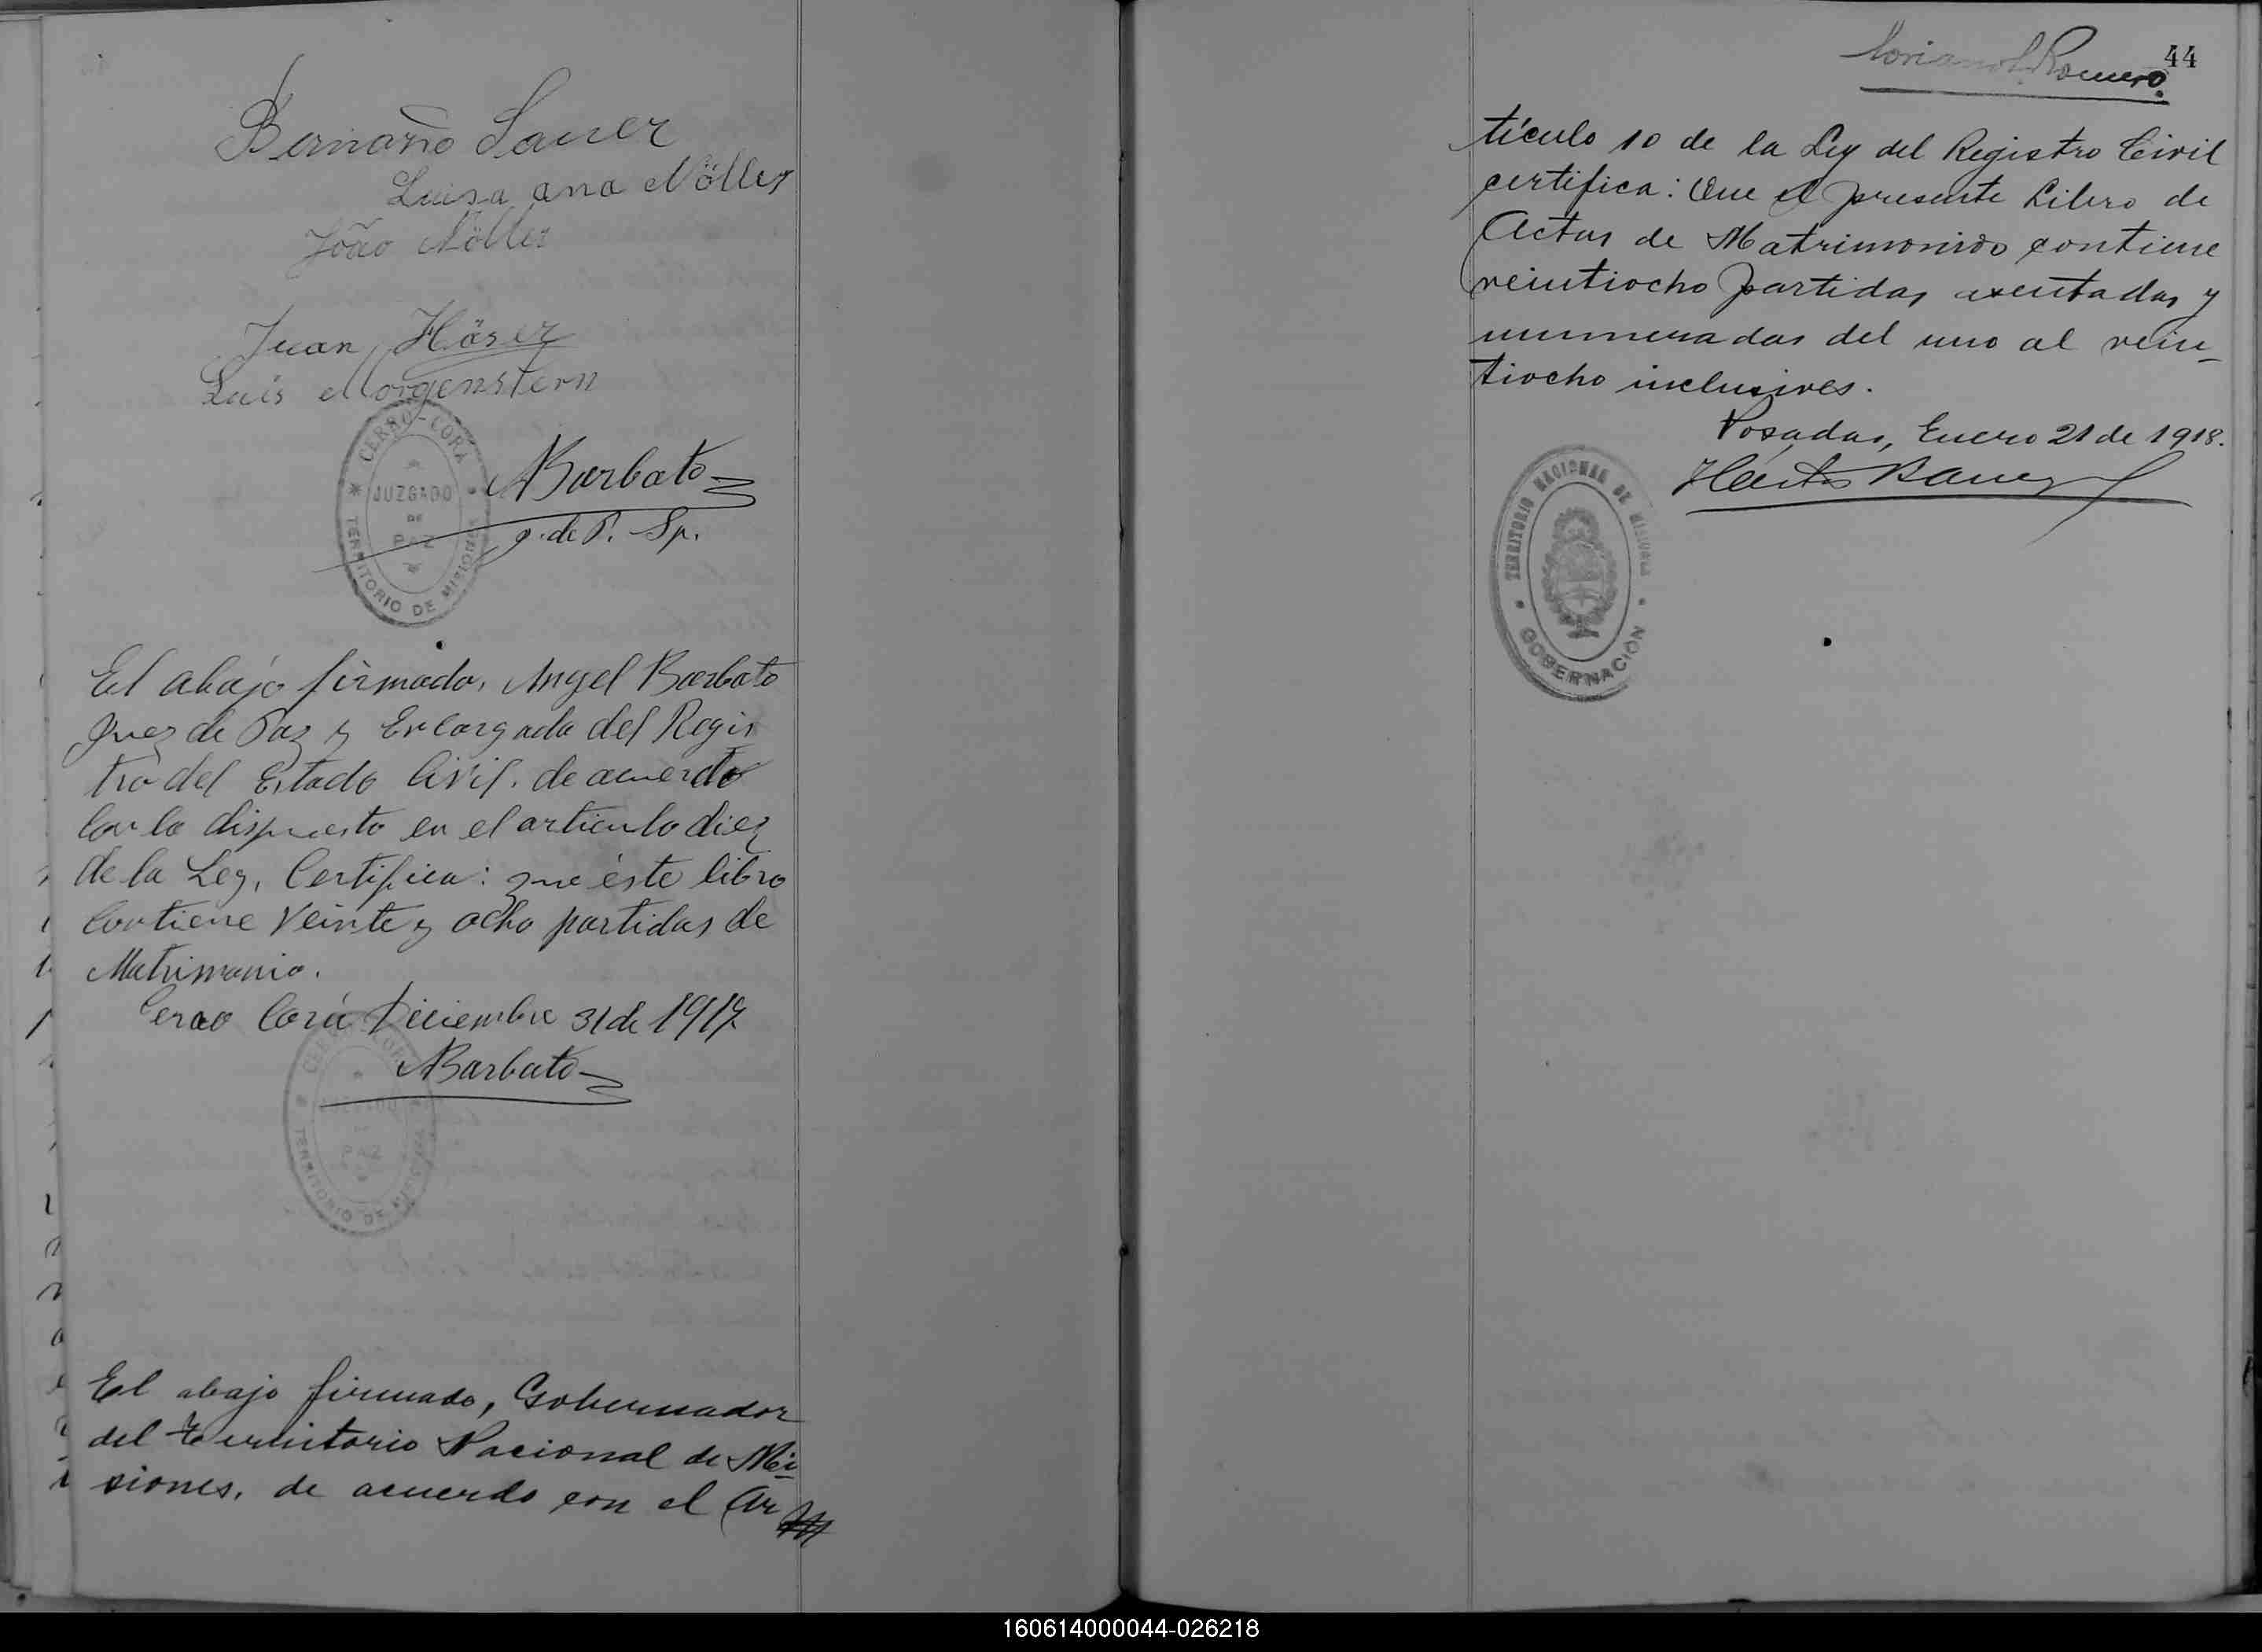 Bernardo Sauer
Luisa Ana Nöller
João Nöller
Juan Häser
Luis Morgenstern
CERRO-CORA
JUZGADO
DE
PAZ
TERRITORIO DE MISIONES
ABarbato
J. de P. Sp.
El abajo firmado, Angel Barbato
Juez de Paz y Encargado del Regis
tro del Estado Civil, de acuerdo
con lo dispuesto en el articulo diez
de la Ley, Certifica: que éste libro
contiene veinte y ocho partidas de
Matrimonio.
Cerro Corá Diciembre 31 de 1917
ABarbato
CERRO-CORA
JUZGADO
DE
PAZ
TERRITORIO DE MISIONES
El abajo firmado, Gobernador
del Territorio Nacional de Mi-
siones, de acuerdo con el Ar
Romero.
44
tículo 10 de la Ley del Registro Civil
certifica: Que el presente Libro de
Actas de Matrimonios contiene
veintiocho partidas asentadas y
numeradas del uno al vein-
tiocho inclusives.
Posadas, Enero 21 de 1918.
TERRITORIO NACIONAL DE MISIONES
GOBERNACION
160614000044-026218